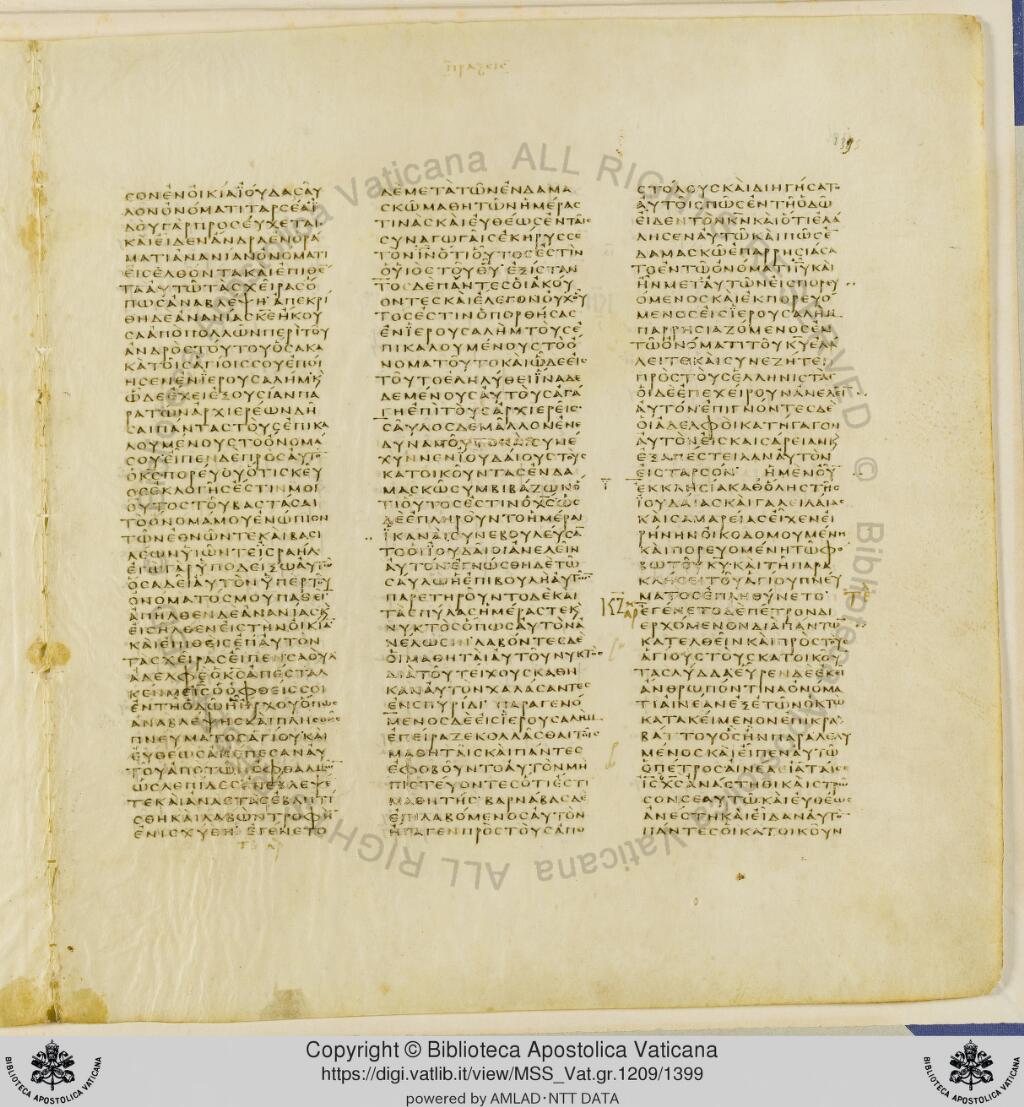 ΠΡΑΞΕΙΣ
ϹΟΝΕΝΟΙΚΙΑΙΟΥΔΑϹΑΥ
ΛΟΝΟΝΟΜΑΤΙΤΑΡϹΕΑΪ
ΔΟΥΓΑΡΠΡΟϹΕΥΧΕΤΑΙ
ΚΑΙΕΙΔΕΝΑΝΔΡΑΕΝΟΡΑ
ΜΑΤΙΑΝΑΝΙΑΝΟΝΟΜΑΤΙ
ΕΙϹΕΛΘΟΝΤΑΚΑΙΕΠΙΘΕ
ΤΑΑΥΤΩΤΑϹΧΕΙΡΑϹΟ
ΠΩϹΑΝΑΒΛΕΨΗ ΑΠΕΚΡΙ
ΘΗΔΕΑΝΑΝΙΑϹΚΕΗΚΟΥ
ϹΑΑΠΟΠΟΛΛΩΝΠΕΡΙΤΟΥ
ΑΝΔΡΟϹΤΟΥΤΟΥΟϹΑΚΑ
ΚΑΤΟΙϹΑΓΙΟΙϹϹΟΥΕΠΟΙ
ΗϹΕΝΕΝΪΕΡΟΥϹΑΛΗΜΚ
ΩΔΕΕΧΕΙΕΞΟΥϹΙΑΝΠΑ
ΡΑΤΩΝΑΡΧΙΕΡΕΩΝΔΗ
ϹΑΙΠΑΝΤΑϹΤΟΥϹΕΠΙΚΑ
ΛΟΥΜΕΝΟΥϹΤΟΟΝΟΜΑ
ϹΟΥΕΙΠΕΝΔΕΠΡΟϹΑΥΤΟ
ΟΚϹΠΟΡΕΥΟΥΟΤΙϹΚΕΥ
ΟϹΕΚΛΟΓΗϹΕϹΤΙΝΜΟΙ
ΟΥΤΟϹΤΟΥΒΑϹΤΑϹΑΙ
ΤΟΟΝΟΜΑΜΟΥΕΝΩΠΙΟΝ
ΤΩΝΕΘΝΩΝΤΕΚΑΙΒΑϹΙ
ΛΕΩΝΫΙΩΝΤΕΙϹΡΑΗΛ
ΕΓΩΓΑΡΫΠΟΔΕΙΞΩΑΥΤΩ
ΟϹΑΔΕΙΑΥΤΟΝΫΠΕΡΤΟΥ
ΟΝΟΜΑΤΟϹΜΟΥΠΑΘΕΙ
ΑΠΗΛΘΕΝΔΕΑΝΑΝΙΑϹΚ
ΕΙϹΗΛΘΕΝΕΙϹΤΗΝΟΙΚΙΑ
ΚΑΙΕΠΙΘΕΙϹΕΠΑΥΤΟΝ
ΤΑϹΧΕΙΡΑϹΕΙΠΕΝϹΑΟΥΛ
ΑΔΕΛΦΕΟΚϹΑΠΕϹΤΑΛ
ΚΕΝΜΕΙϹΟΟΦΘΕΙϹϹΟΙ
ΕΝΤΗΟΔΩΗΗΡΧΟΥΟΠΩϹ
ΑΝΑΒΛΕΨΗϹΚΑΙΠΛΗϹΘΗϹ
ΠΝΕΥΜΑΤΟϹΑΓΙΟΥΚΑΙ
ΕΥΘΕΩϹΑΠΕΠΕϹΑΝΑΥ
ΤΟΥΑΠΟΤΩΝΟΦΘΑΛΜΩ
ΩϹΛΕΠΙΔΕϹΕΝΕΒΛΕΨΕ
ΤΕΚΑΙΑΝΑϹΤΑϹΕΒΑΠΤΙ
ϹΘΗΚΑΙΛΑΒΩΝΤΡΟΦΗ
ΕΝΙϹΧΥΘΗ ΕΓΕΝΕΤΟ
ΔΕΜΕΤΑΤΩΝΕΝΔΑΜΑ
ϹΚΩΜΑΘΗΤΩΝΗΜΕΡΑϹ
ΤΙΝΑϹΚΑΙΕΥΘΕΩϹΕΝΤΑΙϹ
ϹΥΝΑΓΩΓΑΙϹΕΚΗΡΥϹϹΕ
ΤΟΝΙΝΟΤΙΟΥΤΟϹΕϹΤΙΝ
ΟΥΙΟϹΤΟΥΘΥ ΕΞΙϹΤΑΝ
ΤΟΔΕΠΑΝΤΕϹΟΙΑΚΟΥ
ΟΝΤΕϹΚΑΙΕΛΕΓΟΝΟΥΧΟΥ
ΤΟϹΕϹΤΙΝΟΠΟΡΘΗϹΑϹ
ΕΝΪΕΡΟΥϹΑΛΗΜΤΟΥϹΕ
ΠΙΚΑΛΟΥΜΕΝΟΥϹΤΟΟ
ΝΟΜΑΤΟΥΤΟΚΑΙΩΔΕΕΙϹ
ΤΟΥΤΟΕΛΗΛΥΘΕΙΪΝΑΔΕ
ΔΕΜΕΝΟΥϹΑΥΤΟΥϹΑΓΑ
ΓΗΕΠΙΤΟΥϹΑΡΧΙΕΡΕΙϹ
ϹΑΥΛΟϹΔΕΜΑΛΛΟΝΕΝΕ
ΔΥΝΑΜΟΥΤΟΚΑΙϹΥΝΕ
ΧΥΝΝΕΝΙΟΥΔΑΙΟΥϹΤΟΥϹ
ΚΑΤΟΙΚΟΥΝΤΑϹΕΝΔΑ
ΜΑϹΚΩϹΥΜΒΙΒΑΖΩΝΟ
ΤΙΟΥΤΟϹΕϹΤΙΝΟΧϹΩϹ
ΔΕΕΠΛΗΡΟΥΝΤΟΗΜΕΡΑΙ
ΪΚΑΝΑΙϹΥΝΕΒΟΥΛΕΥϹΑ
ΤΟΟΙΪΟΥΔΑΙΟΙΑΝΕΛΕΙΝ
ΑΥΤΟΝΕΓΝΩϹΘΗΔΕΤΩ
ϹΑΥΛΩΗΕΠΙΒΟΥΛΗΑΥΤΩ
ΠΑΡΕΤΗΡΟΥΝΤΟΔΕΚΑΙ
ΤΑϹΠΥΛΑϹΗΜΕΡΑϹΤΕΚ
ΝΥΚΤΟϹΟΠΩϹΑΥΤΟΝΑ
ΝΕΛΩϹΙΝΛΑΒΟΝΤΕϹΔΕ
ΟΙΜΑΘΗΤΑΙΑΥΤΟΥΝΥΚΤΟ
ΔΙΑΤΟΥΤΕΙΧΟΥϹΚΑΘΗ
ΚΑΝΑΥΤΟΝΧΑΛΑϹΑΝΤΕϹ
ΕΝϹΠΥΡΙΔΙ ΠΑΡΑΓΕΝΟ
ΜΕΝΟϹΔΕΕΙϹΪΕΡΟΥϹΑΛΗΜ
ΕΠΕΙΡΑΖΕΚΟΛΛΑϹΘΑΙΤΟΙϹ
ΜΑΘΗΤΑΙϹΚΑΙΠΑΝΤΕϹ
ΕΦΟΒΟΥΝΤΟΑΥΤΟΝΜΗ
ΠΙϹΤΕΥΟΝΤΕϹΟΤΙΕϹΤΙ
ΜΑΘΗΤΗϹ ΒΑΡΝΑΒΑϹΔΕ
ΕΠΙΛΑΒΟΜΕΝΟϹΑΥΤΟΝ
ΗΓΑΓΕΝΠΡΟϹΤΟΥϹΑΠΟ
ϹΤΟΛΟΥϹΚΑΙΔΙΗΓΗϹΑΤΟ
ΑΥΤΟΙϹΠΩϹΕΝΤΗΟΔΩ
ΕΙΔΕΝΤΟΝΚΝΚΑΙΟΤΙΕΛΑ
ΛΗϹΕΝΑΥΤΩΚΑΙΠΩϹΕ
ΔΑΜΑϹΚΩΕΠΑΡΡΗϹΙΑϹΑ
ΤΟΕΝΤΩΟΝΟΜΑΤΙΙΥΚΑΙ
ΗΝΜΕΤΑΥΤΩΝΕΙϹΠΟΡΕΥ
ΟΜΕΝΟϹΚΑΙΕΚΠΟΡΕΥΟ
ΜΕΝΟϹΕΙϹΙΕΡΟΥϹΑΛΗΜ
ΠΑΡΡΗϹΙΑΖΟΜΕΝΟϹΕΝ
ΤΩΟΝΟΜΑΤΙΤΟΥΚΥΕΛΑ
ΛΕΙΤΕΚΑΙϹΥΝΕΖΗΤΕΙ
ΠΡΟϹΤΟΥϹΕΛΛΗΝΙϹΤΑϹ
ΟΙΔΕΕΠΕΧΕΙΡΟΥΝΑΝΕΛΕΙ
ΑΥΤΟΝΕΠΙΓΝΟΝΤΕϹΔΕ
ΟΙΑΔΕΛΦΟΙΚΑΤΗΓΑΓΟΝ
ΑΥΤΟΝΕΙϹΚΑΙϹΑΡΕΙΑΝΚ
ΕΞΑΠΕϹΤΕΙΛΑΝΑΥΤΟΝ
ΕΙϹΤΑΡϹΟΝ ΗΜΕΝΟΥ
ΕΚΚΛΗϹΙΑΚΑΘΟΛΗϹΤΗϹ
ΙΟΥΔΑΙΑϹΚΑΙΓΑΛΕΙΛΑΙΑϹ
ΚΑΙϹΑΜΑΡΕΙΑϹΕΙΧΕΝΕΙ
ΡΗΝΗΝΟΙΚΟΔΟΜΟΥΜΕΝΗ
ΚΑΙΠΟΡΕΥΟΜΕΝΗΤΩΦΟ
ΒΩΤΟΥΚΥΚΑΙΤΗΠΑΡΑ
ΚΛΗϹΕΙΤΟΥΑΓΙΟΥΠΝΕΥ
ΜΑΤΟϹΕΠΛΗΘΥΝΕΤΟ
ΕΓΕΝΕΤΟΔΕΠΕΤΡΟΝΔΙ
ΕΡΧΟΜΕΝΟΝΔΙΑΠΑΝΤΩ
ΚΑΤΕΛΘΕΙΝΚΑΙΠΡΟϹΤΟΥ
ΑΓΙΟΥϹΤΟΥϹΚΑΤΟΙΚΟΥ
ΤΑϹΛΥΔΔΑΕΥΡΕΝΔΕΕΚΕΙ
ΑΝΘΡΩΠΟΝΤΙΝΑΟΝΟΜΑ
ΤΙΑΙΝΕΑΝΕΞΕΤΩΝΟΚΤΩ
ΚΑΤΑΚΕΙΜΕΝΟΝΕΠΙΚΡΑ
ΒΑΤΤΟΥΟϹΗΝΠΑΡΑΛΕΛΥ
ΜΕΝΟϹΚΑΙΕΙΠΕΝΑΥΤΩ
ΟΠΕΤΡΟϹΑΙΝΕΑΕΙΑΤΑΙϹΕ
ΙϹΧϹΑΝΑϹΤΗΘΙΚΑΙϹΤΡΩ
ϹΟΝϹΕΑΥΤΩΚΑΙΕΥΘΕΩϹ
ΑΝΕϹΤΗΚΑΙΕΙΔΑΝΑΥΤΟ
ΠΑΝΤΕϹΟΙΚΑΤΟΙΚΟΥΝ
Copyright © Biblioteca Apostolica Vaticana
https://digi.vatlib.it/view/MSS_Vat.gr.1209/1399
powered by AMLAD·NTT DATA